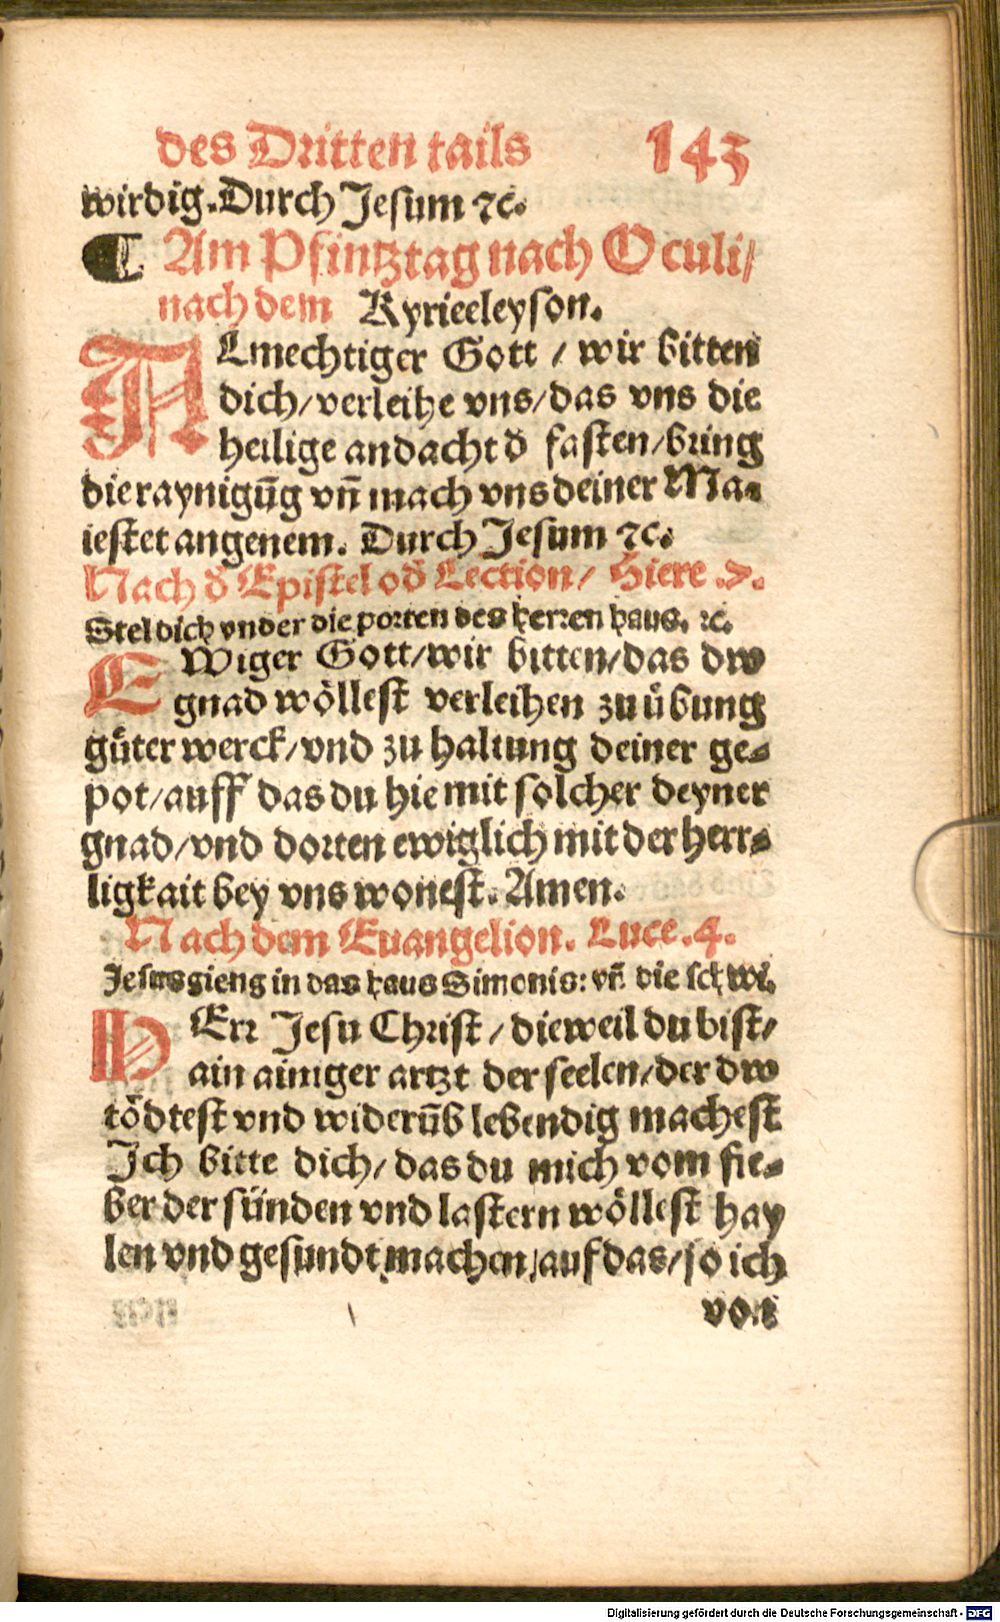 des Dritten tails 143
wirdig. Durch Jesum ⁊c.
¶ Am Pfintztag nach Oculi/
nach dem Kyrieeleyson.
ALmechtiger Gott / wir bitten
dich/verleihe vns/das vns die
heilige andacht d̄ fasten/bring
die raynigūg vn̄ mach vns deiner Ma-
iestet angenem. Durch Jesum ⁊c.
Nach d̄ Epistel od̄ Lection/ Hiere .7.
Stel dich vnder die porten des herren haus. ⁊c.
EWiger Gott/wir bitten/das dw
gnad wöllest verleihen zu übung
gůter werck/vnd zu haltung deiner ge-
pot/auff das du hie mit solcher deyner
gnad/vnd dorten ewiglich mit der herr-
ligkait bey vns wonest. Amen.
Nach dem Euangelion. Luce .4.
Jesus gieng in das haus Simonis: vn̄ die schwi.
HErr Jesu Christ / dieweil du bist/
ain ainiger artzt der seelen/der dw
tödtest vnd widerūb lebendig machest
Ich bitte dich/ das du mich vom fie-
ber der sünden vnd lastern wöllest hay
len vnd gesundt machen/auf das/so ich
von
Digitalisierung gefördert durch die Deutsche Forschungsgemeinschaft - DFG